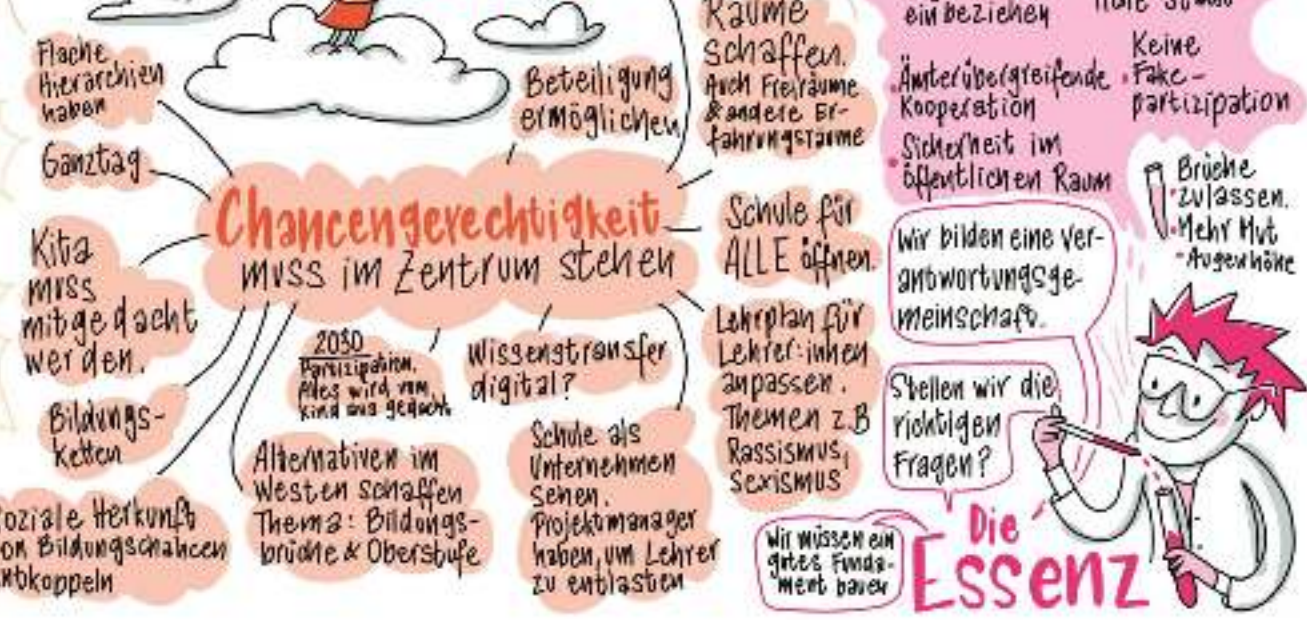 Flache
Hierarchien
haben
Ganztag
Kita
muss
mitgedacht
werden.
Bildungs-
ketten
oziale Herkunft
on Bildungschancen
ntkoppeln
Beteiligung
ermöglichen
Räume
schaffen.
Auch Freiräume
& andere Er-
fahrungsräume
Chancengerechtigkeit
muss im Zentrum stehen
Schule für
ALLE öffnen.
Lehrplan für
Lehrer:innen
anpassen.
Themen z.B
Rassismus,
Sexismus
2030
Partizipation.
Alles wird vom
Kind aus gedacht
Wissenstransfer
digital?
Alternativen im
Westen schaffen
Thema: Bildungs-
brüche & Oberstufe
Schule als
Unternehmen
sehen.
Projektmanager
haben, um Lehrer
zu entlasten
einbeziehen
Ämterübergreifende
Kooperation
Sicherheit im
öffentlichen Raum
Keine
Fake-
partizipation
Brüche
zulassen.
Mehr Mut
Augenhöhe
Wir bilden eine Ver-
antwortungsge-
meinschaft.
Stellen wir die
richtigen
Fragen?
Wir müssen ein
gutes Funda-
ment bauen
Die
Essenz